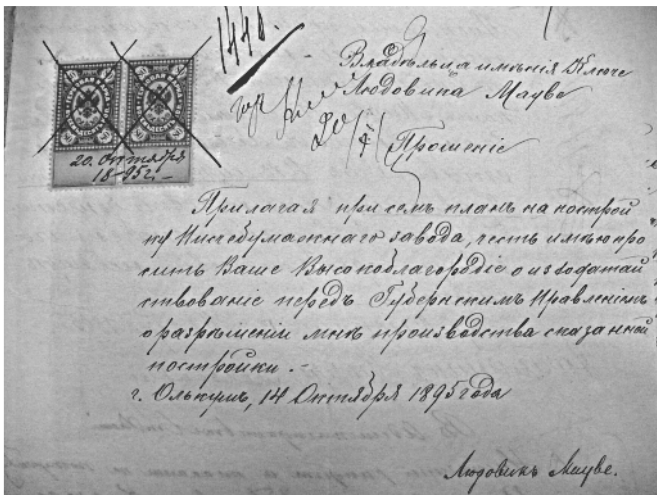 1440.
Владѣльца имѣнія Ключе
Людовика Мауве
Прошеніе
20. Октября
1895 г. –
Прилагая при семъ планъ на построй
ку Писчебумажнаго завода, честь имѣю про
сить Ваше Высокоблагородіе о изходатай
ствованіе передъ Губернскимъ Правленіемъ
о разрѣшеніи мнѣ производства сказанной
постройки. –
г. Олькушъ, 14 Октября 1895 года
Людовикъ Мауве.